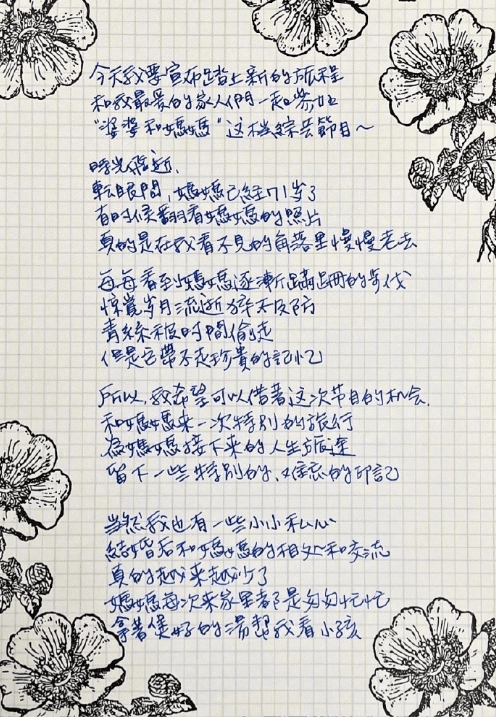 今天我要宣布踏上新的旅程
和我最爱的家人們一起參加
“婆婆和媽媽”这档綜芸節目～
時光飛逝,
転眼間,媽媽已経71岁了
有时候翻看媽媽的照片
真的是在我看不見的角落里慢慢老去
每每看到媽媽逐漸蹣跚的步伐
惊覚岁月流逝猝不及防
青絲被时間偷走
但是它帶不走珍貴的記忆
所以,我希望可以借着这次节目的机会,
和媽媽来一次特别的旅行
為媽媽接下来的人生旅途
留下一些特别的、难忘的印記
当然我也有一些小小私心
結婚后和媽媽的相处和交流
真的越来越少了
媽媽每次来家里都是匆匆忙忙
拿着煲好的湯幫我看小孩